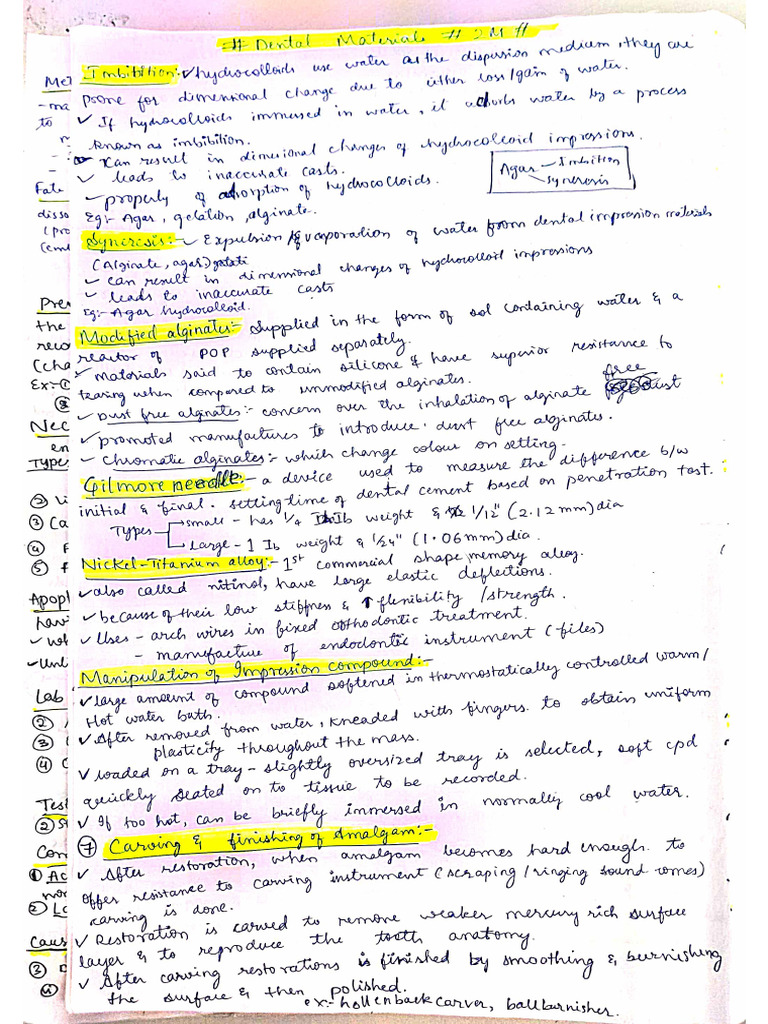 # Dental Materials # 2M #
Imbibition:- ✓ hydrocolloids use water as the dispersion medium, they are
prone for dimensional change due to either loss/gain of water.
✓ If hydrocolloids immersed in water, it adsorbs water by a process
known as imbibition.
✓ Can result in dimensional changes of hydrocolloid impressions.
✓ leads to inaccurate casts.
Agar - Imbibition
syneresis
✓ property of adsorption of hydrocolloids.
Eg:- Agar, gelation, alginate.
Syneresis:- ✓ Expulsion/Evaporation of water from dental impression materials
(Alginate, agar)
✓ can result in dimensional changes of hydrocolloid impressions
✓ leads to inaccurate casts
Eg:- Agar hydrocolloid.
Modified alginates:- Supplied in the form of sol containing water & a
reactor of POP supplied separately.
✓ materials said to contain silicone & have superior resistance to
tearing when compared to unmodified alginates.
✓ Dust free alginates:- concern over the inhalation of alginate free dust
✓ promoted manufactures to introduce dust free alginates.
✓ Chromatic alginates:- which change colour on setting.
Gilmore needle:- a device used to measure the difference b/w
initial & final setting time of dental cement based on penetration test.
Types small - has 1/4 Ib weight & 1/12" (2.12 mm) dia
large - 1 Ib weight & 1/24" (1.06 mm) dia.
Nickel-Titanium alloy:- 1st commercial shape memory alloy.
✓ also called nitinol, have large elastic deflections.
✓ because of their low stiffness & ↑ flexibility /strength.
✓ Uses - arch wires in fixed orthodontic treatment.
- manufacture of endodontic instrument (files)
Manipulation of Impression compound:-
✓ large amount of compound softened in thermostatically controlled warm/
Hot water bath.
✓ After removed from water, kneaded with fingers. to obtain uniform
plasticity throughout the mass.
✓ loaded on a tray - slightly oversized tray is selected, soft cpd
quickly seated on to tissue to be recorded.
✓ If too hot, can be briefly immersed in normally cool water.
⑦ Carving & finishing of Amalgam:-
✓ After restoration, when amalgam becomes hard enough. to
offer resistance to carving instrument (scraping/ringing sound comes)
carving is done.
✓ Restoration is carved to remove weaker mercury rich surface
layer & to reproduce the tooth anatomy.
✓ After carving restorations is finished by smoothing & burnishing
the surface & then polished.
ex:- hollenback carver, ball burnisher.